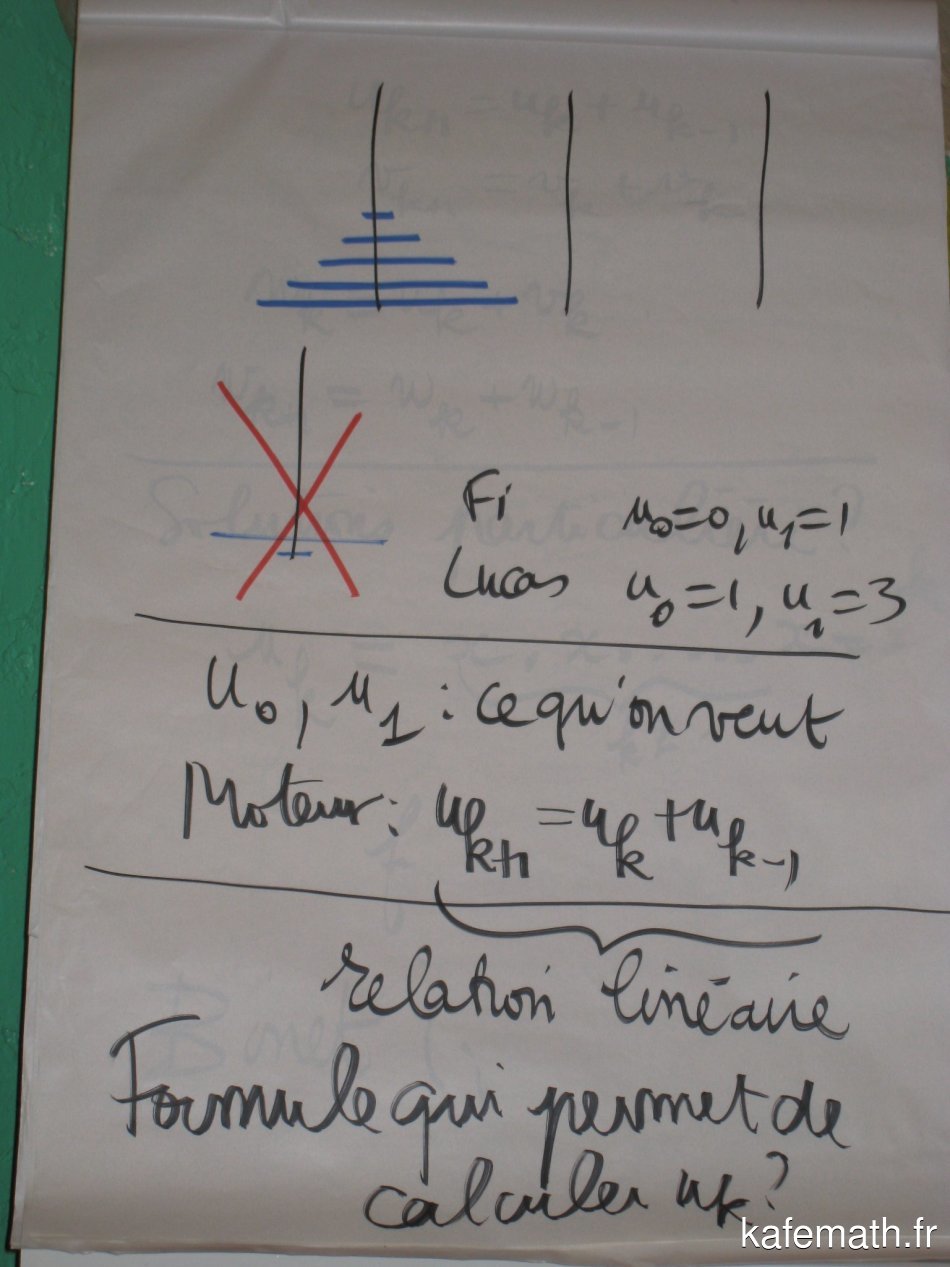 Fi u₀=0, u₁=1
Lucas u₀=1, u₁=3
u₀, u₁ : ce qu'on veut
Moteur : uₖ₊₁ = uₖ + uₖ₋₁
relation linéaire
Formule qui permet de
calculer uₖ ?
kafemath.fr